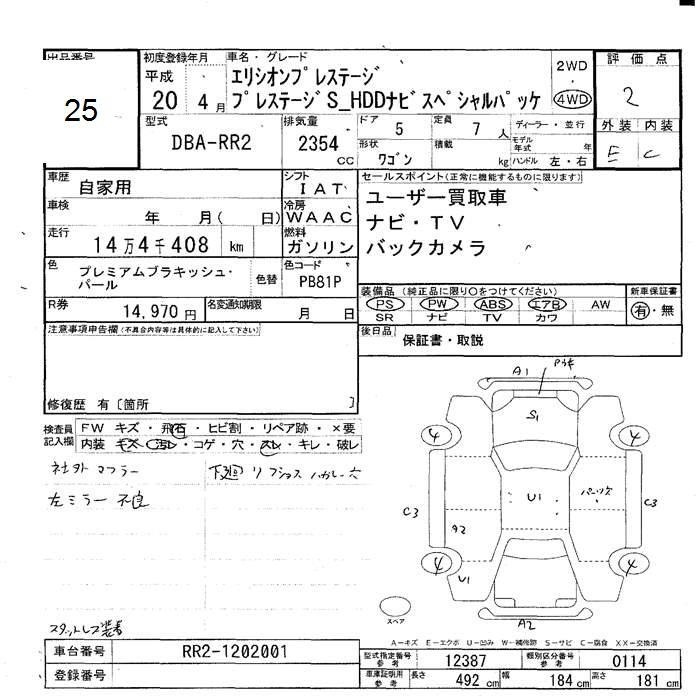 出品番号 初度登録年月 車名・グレード 2WD 評価点
25 平成 20 年 4 月 エリシオンプレステージ 4WD 2
プレステージS_HDDナビスペシャルパッケ
型式 DBA-RR2 排気量 2354 CC ドア 5 定員 7 人 ディーラー・並行 外装 内装
形状 ワゴン 積載 kg モデル年式 年 ハンドル 左・右 E C
車歴 自家用 シフト IAT セールスポイント(正常に機能するものに限ります)
車検 年 月( 日) 冷房 WAAC ユーザー買取車
走行 14万4千408 km 燃料 ガソリン ナビ・TV
バックカメラ
色 プレミアムブラキッシュ・パール 色替 色コード PB81P
装備品 (純正品に限り○をつけてください) 新車保証書
R券 14,970円 名変通知期限 月 日 PS PW ABS エアB AW 有・無
SR ナビ TV カワ
注意事項申告欄(不具合内容等は具体的に記入して下さい) 後日品 保証書・取説
修復歴 有〔箇所 〕
検査員記入欄 FW キズ・飛石・ヒビ割・リペア跡・×要
内装 キズ・汚レ・コゲ・穴・スレ・キレ・破レ
社外マフラー 下廻リ
左ミラー不良
A1
S1
4 4
U1
C3 C3
A2
4 4
U1
スペア A2
スタットレス装着
A-キズ E-エクボ U-凹み W-補修跡 S-サビ C-腐食 XX-交換済
車台番号 RR2-1202001 型式指定番号 参考 12387 類別区分番号 参考 0114
登録番号 車庫証明用 参考 長さ 492 cm 幅 184 cm 高さ 181 cm